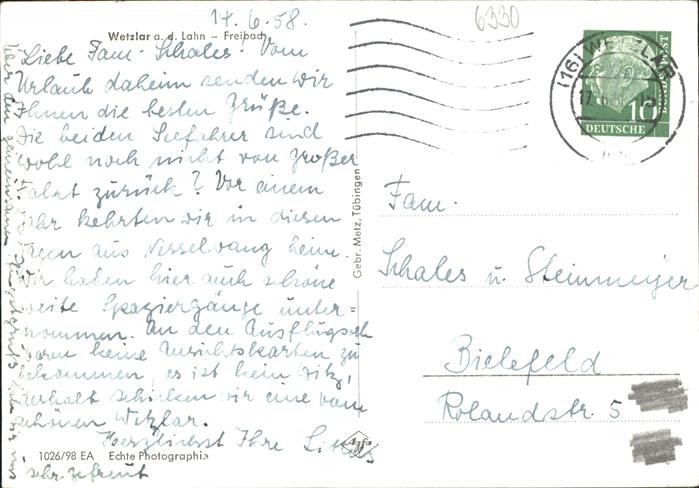 14.6.58.
6330
Wetzlar a. d. Lahn – Freibad
Liebe Fam. Schales! Vom
Urlaub daheim senden wir
Ihnen die besten Grüße.
Die beiden Seefahrer sind
wohl noch nicht von großer
Fahrt zurück? Vor einem
Jahr kehrten wir in diesen
Tagen aus Nesselwang heim.
Wir haben hier auch schöne
weite Spaziergänge unter=
nommen. An den Ausflugs
waren keine Ansichtskarten zu
bekommen, es ist kein Witz,
deshalb schicken wir eine vom
schönen Wetzlar.
Herzlichst Ihre
Über den gemeinsamen haben wir uns
sehr gefreut
1026/98 EA Echte Photographie
Agfa
Gebr. Metz, Tübingen
(16) WETZLAR
17.6.
10
DEUTSCHE
BUNDESPOST
Fam.
Schales u. Steinmeyer
Bielefeld
Rolandstr. 5